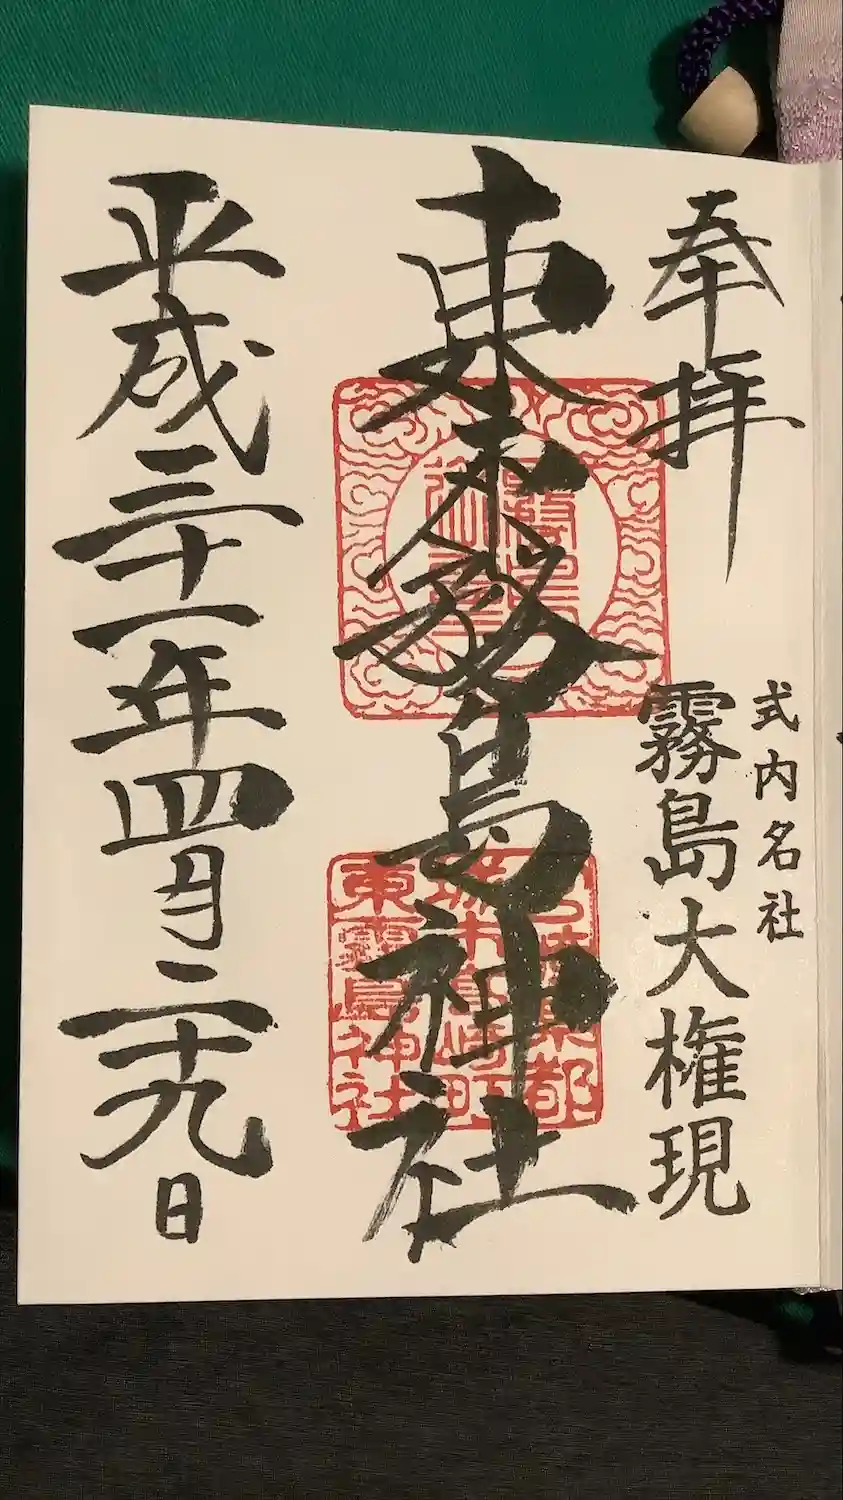 奉拝
式内名社
霧島大権現
東霧島神社
平成三十一年四月二十九日
東霧島神社